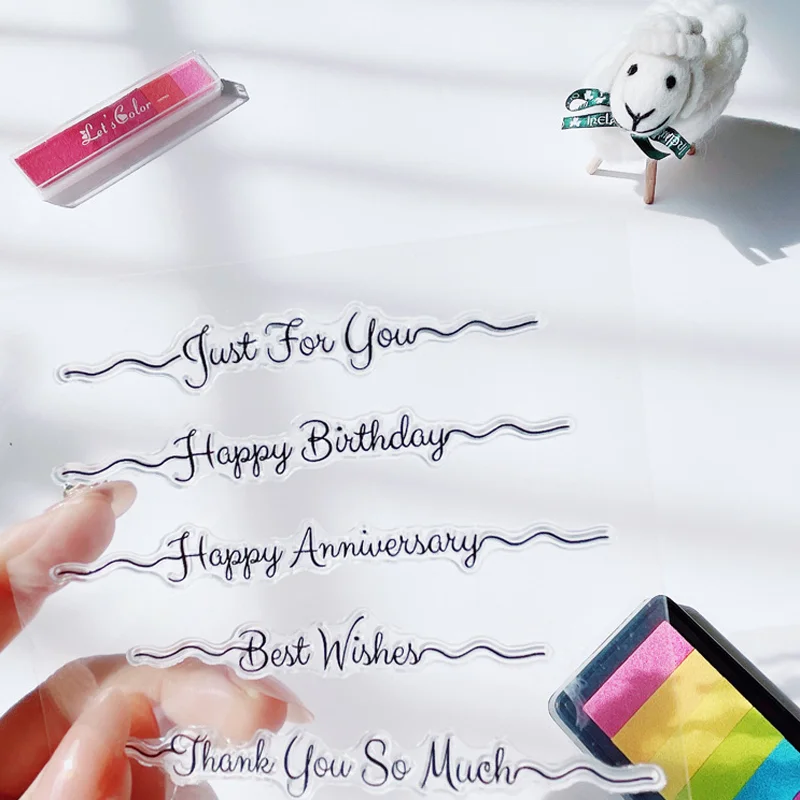 Let's Color
Irela
Just For You
Happy Birthday
Happy Anniversary
Best Wishes
Thank You So Much